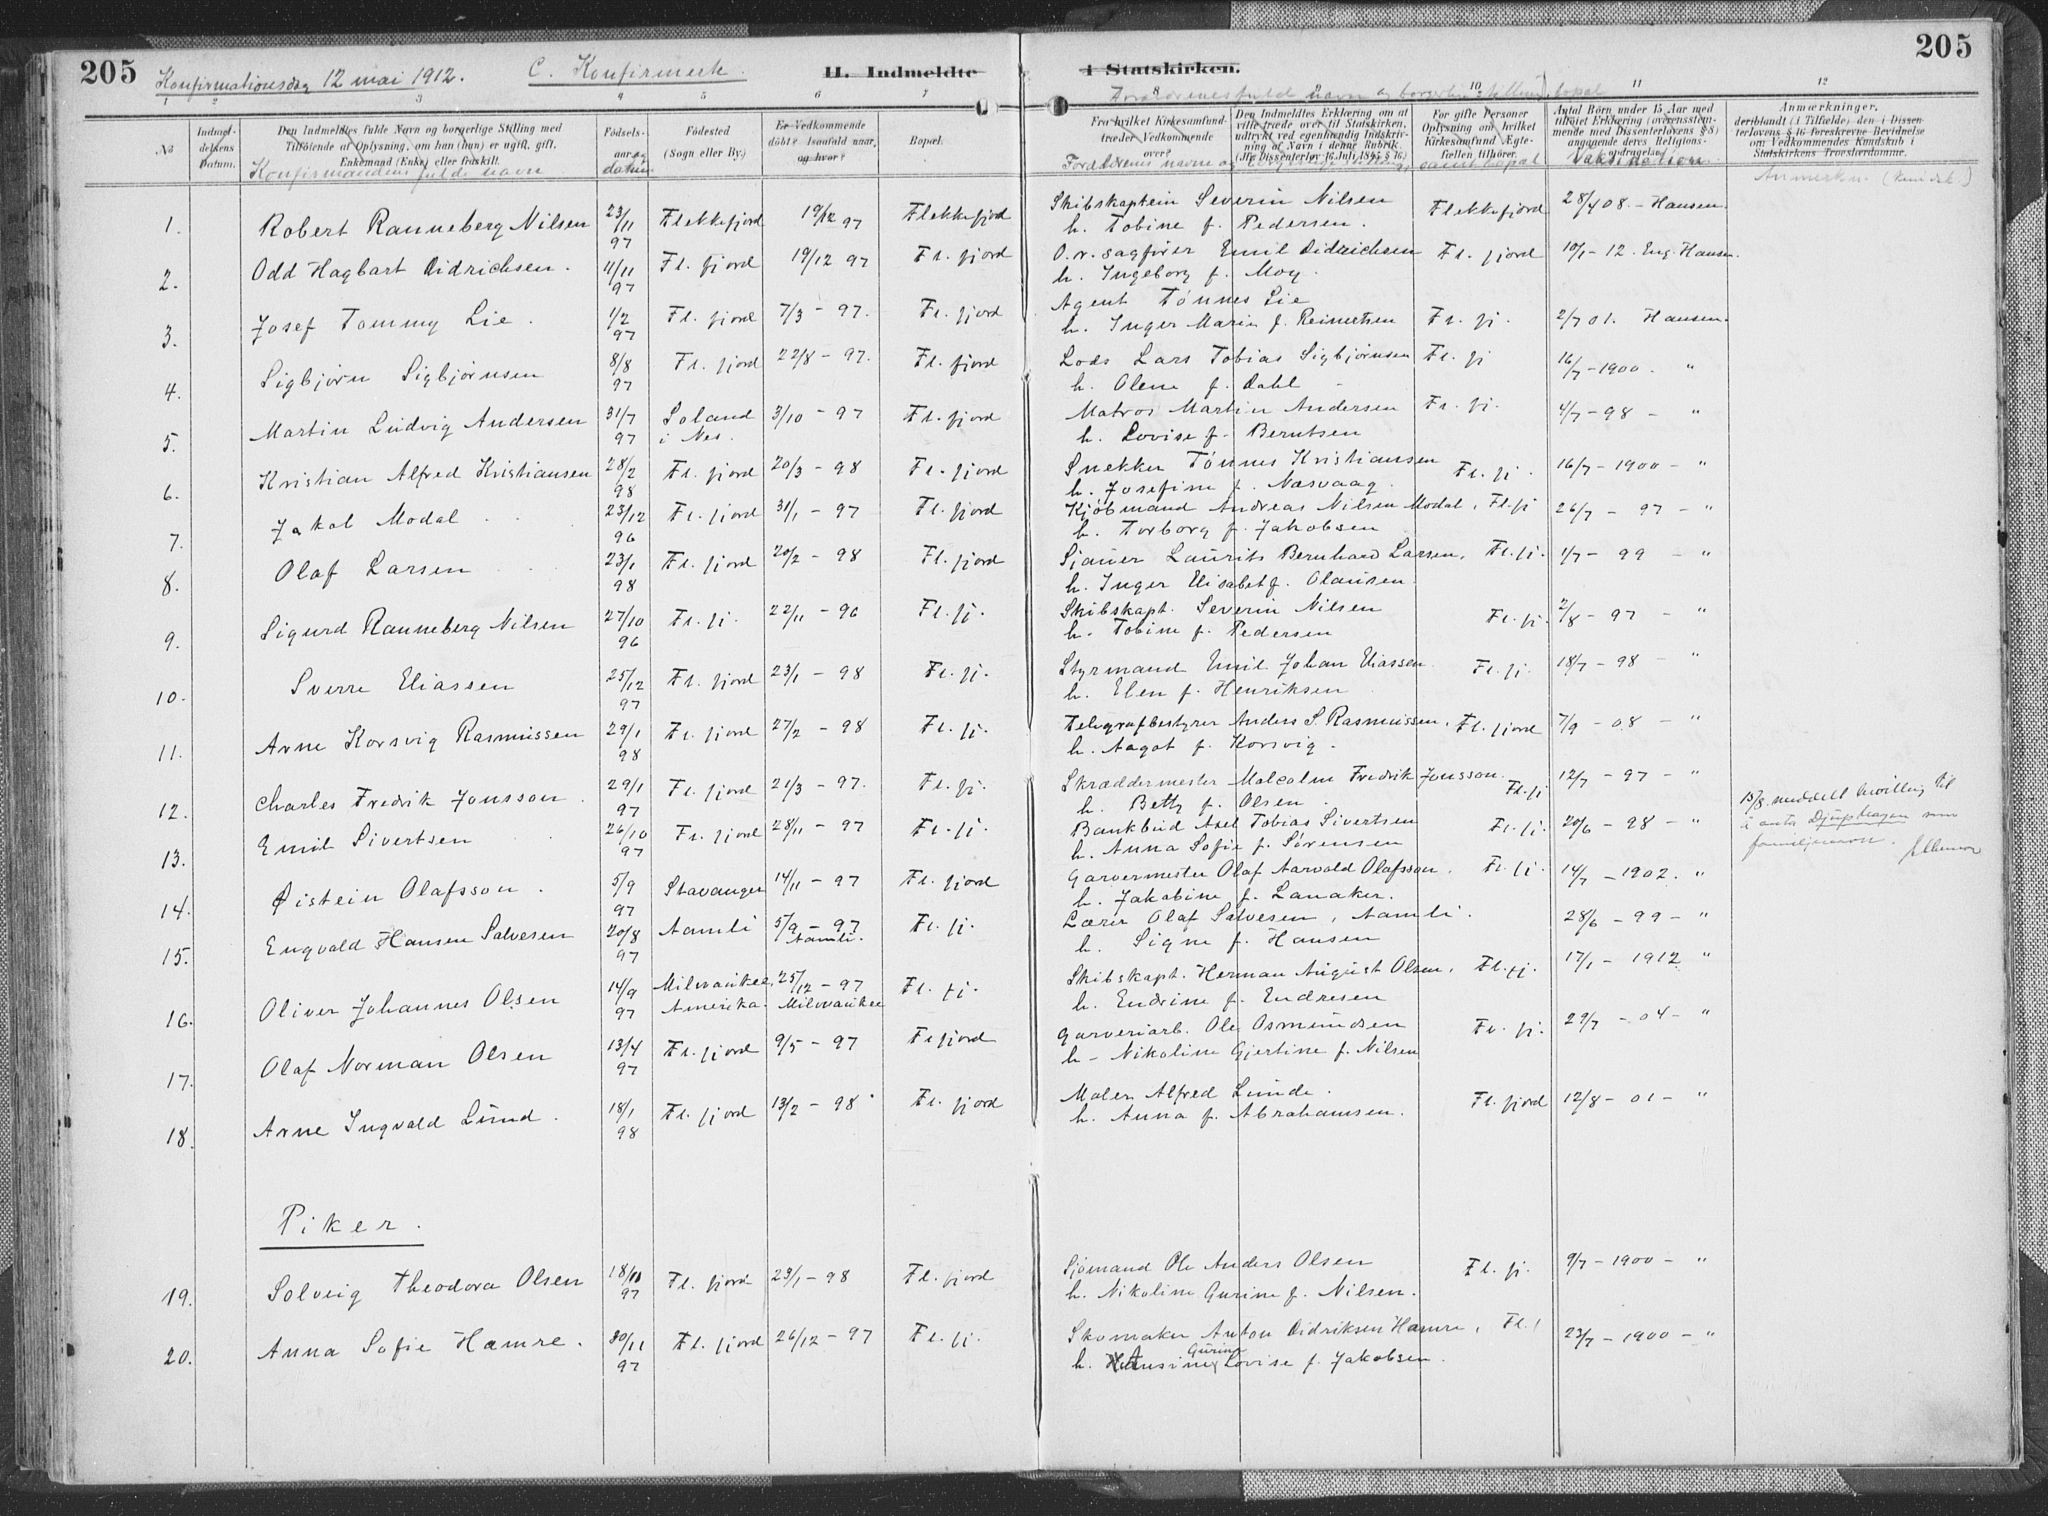 205
205
Konfirmationsdag 12 mai 1912. C. Konfirmerte
H. Indmeldte i Statskirken.
Forældrenes fulde navn og borgerlige stilling, bopæl
1 2 3 4 5 6 7 8 9 10 11 12
No
Indmeldelsens Datum.
Den Indmeldtes fulde Navn og borgerlige Stilling med
Tilføiende af Oplysning, om han (hun) er ugift, gift,
Enkemand (Enke) eller fraskilt.
Konfirmandens fulde navn
Fødselsaar og datum
Fødested
(Sogn eller By.)
Er Vedkommende
døbt? Isaafald naar,
og hvor?
Bopæl.
Fra hvilket Kirkesamfund
træder Vedkommende
over?
Den Indmeldtes Erklæring om at
ville træde over til Statskirken,
udtrykt ved egenhændig Indskrivning
af Navn i denne Rubrik.
(Jfr. Dissenterlov 16 Juli 1845 § 16.)
For gifte Personer
Oplysning om hvilket
Kirkesamfund Ægtefællen
tilhører.
Antal Børn under 15 Aar med
tilføiet Erklæring (overensstemmende
med Dissenterlovens § 8)
angaaende deres Religionsopdragelse.
Vaksination
Anmærkninger,
deriblandt (i Tilfælde) den i Dissenterlovens
§ 16 foreskrevne Bevidnelse
om Vedkommendes Kundskab i
Statskirkens Troeslærdomme.
1. Robert Ranneberg Nilsen 23/11 97 Flekkefjord 19/12 97 Flekkefjord Skibskaptein Severin Nilsen Flekkefjord 28/4 08 - Hansen.
h. Tobine f. Pedersen.
2. Odd Hagbart Didrichsen. 11/11 97 Fl. fjord 19/12 97 Fl. fjord O.r. sagfører Emil Didrichsen Fl. fjord 10/1 - 12. Eug. Hansen.
h. Ingeborg f. Moy.
3. Josef Tommy Lie. 1/2 97 Fl. fjord 7/3 - 97. Fl. fjord Agent Tønnes Lie
h. Inger Marie f. Reinertsen Fl. fj. 2/7 01. Hansen.
4. Sigbjørn Sigbjørnsen 8/8 97 Fl. fjord 22/8 - 97. Fl. fjord Lods Lars Tobias Sigbjørnsen Fl. fj 16/7 - 1900. "
h. Olene f. Dahl
5. Martin Ludvig Andersen 31/7 97 Soland i Nes. 3/10 - 97 Fl. fjord Matros Martin Andersen Fl. fj. 4/7 - 98 - "
h. Lovise f. Berntsen
6. Kristian Alfred Kristiansen 28/2 98 Fl. fjord 20/3 - 98 Fl. fjord Snekker Tønnes Kristiansen Fl. fj. 16/7 - 1900 - "
h. Josefine f. Næsvaag.
7. Jakob Modal 23/12 96 Fl. fjord 31/1 - 97 Fl. fjord Kjøbmand Andreas Nilsen Modal, Fl. fj 26/7 - 97 - "
h. Torborg f. Jakobsen
8. Olaf Larsen 23/1 98 Fl. fjord 20/2 - 98 Fl. fjord Sjauer Laurits Bernhard Larsen, Fl. fj. 1/7 - 99 - "
h. Inger Elisabet f. Olausen.
9. Sigurd Ranneberg Nilsen 27/10 96 Fl. fj. 22/11 - 96 Fl. fj. Skibskapt. Severin Nilsen Fl. fj. 2/8 - 97 - "
h. Tobine f. Pedersen
10. Sverre Eliassen 25/12 97 Fl. fjord 23/1 - 98 Fl. fj. Styrmand Emil Johan Eliassen Fl. fj. 18/7 - 98 - "
h. Elen f. Henriksen
11. Arne Korsvig Rasmussen 29/1 98 Fl. fjord 27/2 - 98 Fl. fj. Telegrafbestyrer Anders S. Rasmussen, Fl. fjord 7/9 - 08 - "
h. Aagot f. Korsvig.
12. Charles Fredrik Jonsson. 29/1 97 Fl. fjord 21/3 - 97. Fl. fj. Skræddermester Malcolm Fredrik Jonsson. Fl. fj 12/7 - 97 - "
h. Betty f. Olsen.
13. Emil Sivertsen 26/10 97 Fl. fjord 28/11 - 97 Fl. fj. Bankbud Axel Tobias Sivertsen Fl. fj. 20/6 - 98 - "
h. Anna Sofie f. Sørensen
meddelt bevilling til
å anta Djuphagen som
familjenavn.
14. Øistein Olafsson. 5/9 97 Stavanger 14/11 - 97 Fl. fjord Garvermester Olaf Aarvold Olafsson, Fl. fj. 14/7 - 1902. "
h. Jakobine f. Lanaker.
15. Engvald Hansen Salvesen 20/8 97 Aamli 5/9 - 97 Aamli. Fl. fj. Lærer Olaf Salvesen, Aamli. 28/6 - 99 - "
h. Signe f. Hansen
16. Oliver Johannes Olsen 14/9 97 Milwaukee, Amerika. 25/12 - 97 Milwaukee Fl. fj. Skibskapt. Herman August Olsen, Fl. fj. 17/1 - 1912 "
h. Endrine f. Endresen
17. Olaf Norman Olsen 13/4 97 Fl. fjord 9/5 - 97 Fl fjord Garveriarb. Ole Osmundsen Fl. fj. 29/7 - 04 - "
h - Nikoline Gjertine f. Nilsen
18. Arne Ingvald Lund. 18/1 98 Fl. fjord 13/2 - 98 Fl. fjord Maler Alfred Lunde. Fl. fjord 12/8 - 01 - "
h. Anna f. Abrahamsen.
Piker.
19. Solveig Theodora Olsen 97 Fl. fjord 23/1 - 98 Fl. fjord Sjømand Ole Anders Olsen Fl. fj. 9/7 - 1900 - "
h. Nikoline Gurine f. Nilsen.
20. Anna Sofie Hamre. 30/11 97 Fl. fjord 26/12 - 97 Fl. fj. Skomaker Anton Didriksen Hamre, Fl. 23/7 - 1900 - "
h. Ansine Gurine Lovise f. Jakobsen.